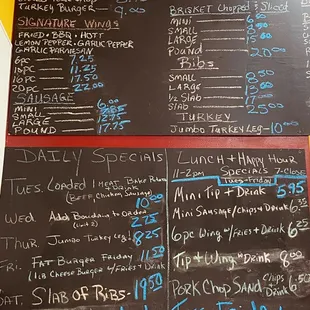 TURKEY BURGER
SIGNATURE WINGS
FRIED · BBQ · HOTT
LEMON PEPPER · GARLIC PEPPER
GARLIC PARMESAN
6pc — 7.25
10pc — 11.25
16pc — 17.50
20pc — 22.00
SAUSAGE
MINI
SMALL
LARGE 12.75
POUND 17.75
BRISKET Chopped & Sliced
MINI 6.00
SMALL
LARGE
POUND 20.00
Ribs
SMALL 8.50
LARGE 13.00
1/2 SLAB
SLAB 25.00
TURKEY
JUMBO TURKEY LEG — 10.00
DAILY SPECIALS
TUES. LOADED 1 MEAT BAKE POTATO
+ DRINK
(BEEF, CHICKEN, SAUSAGE)
10.00
WED. Add Boudain to Order
2.75
THUR. JUMBO TURKEY LEG 8.25
FRI. FAT BURGER FRIDAY 11.50
(1 LB CHEESE BURGER W/FRIES + DRINK)
SAT. SLAB OF RIBS - 19.50
LUNCH + HAPPY HOUR
11-2pm SPECIALS 7-CLOSE
TUES - FRIDAY
MINI TIP + DRINK 5.95
MINI SAUSAGE/CHIPS + DRINK 6.35
6pc WING W/FRIES + DRINK
TIP + WING W/ DRINK 8.00
PORK CHOP SAND. CHIPS + DRINK 6.50